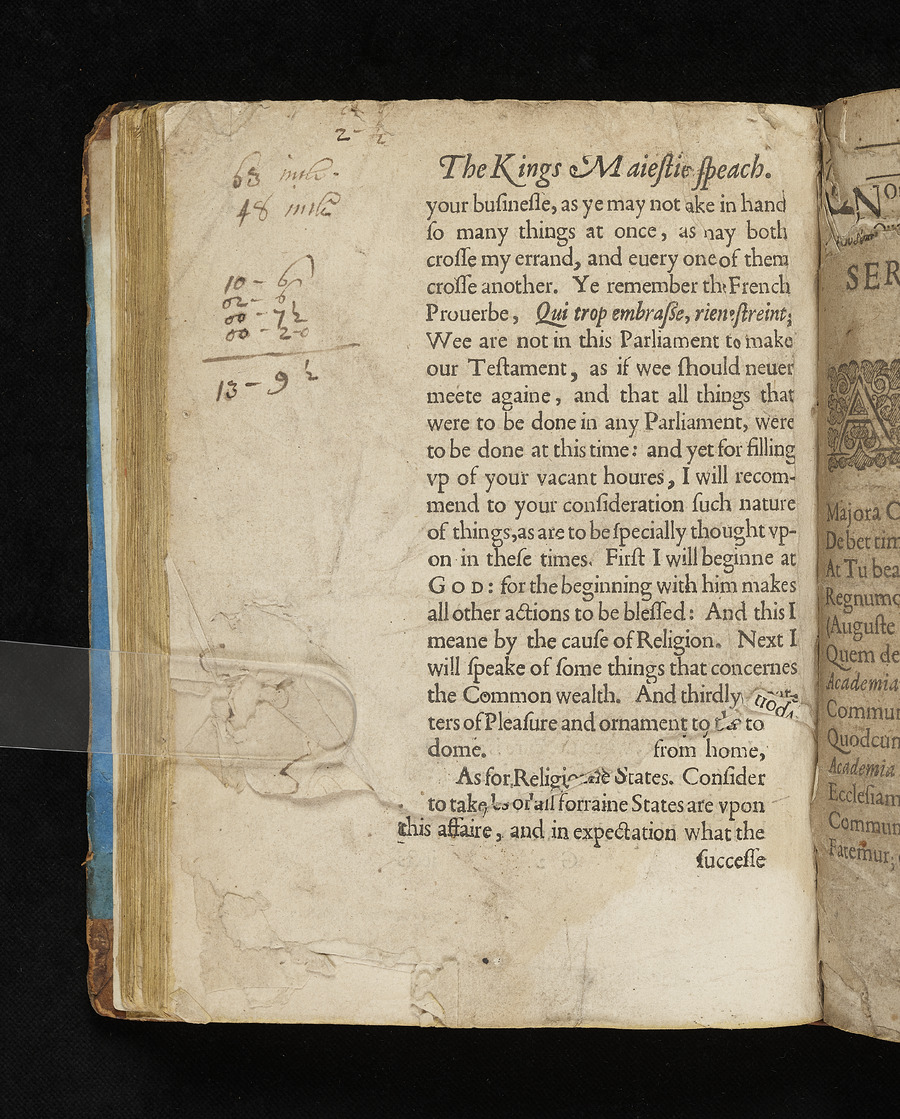 2 - ½
63 mile -
48 mile
10 - 6
02 - 6
00 - 7 ½
00 - 2 - 0
13 - 9 ½
The Kings Maieſtie ſpeach.
your buſineſſe, as ye may not ake in hand
ſo many things at once, as nay both
croſſe my errand, and euery one of them
croſſe another. Ye remember the French
Prouerbe, Qui trop embraſſe, rien eſtreint;
Wee are not in this Parliament to make
our Teſtament, as if wee ſhould neuer
meete againe, and that all things that
were to be done in any Parliament, were
to be done at this time: and yet for filling
vp of your vacant houres, I will recom-
mend to your conſideration ſuch nature
of things, as are to be ſpecially thought vp-
on in theſe times. Firſt I will beginne at
GOD: for the beginning with him makes
all other actions to be bleſſed: And this I
meane by the cauſe of Religion. Next I
will ſpeake of ſome things that concernes
the Common wealth. And thirdly,
vpon
ters of Pleaſure and ornament to to
dome. from home,
As for Religio States. Conſider
to take or all forraine States are vpon
this affaire, and in expectation what the
ſucceſſe
No
SER
A
Majora C
Debet tim
At Tu bea
Regnumq
(Auguſte
Quem de
Academia
Commun
Quodcun
Academia
Eccleſiam
Commun
Fatemur;